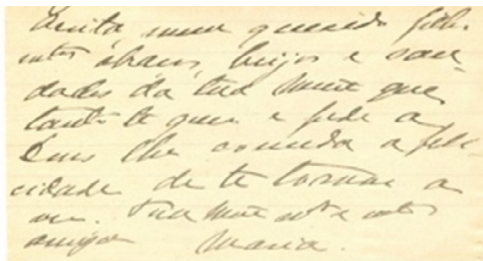 meu querido filho
abraços, beijos e sau-
dades da tua Mãe que
tanto te quer e pede a
Deus lhe conceda a feli-
cidade de te tornar a
ver. Tua Mãe
amiga Maria.